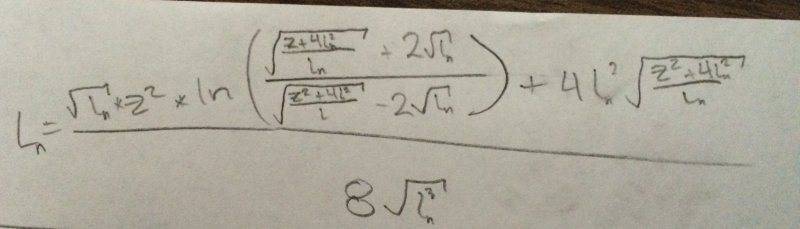 Lₙ = (√(Lₙ) * z² * ln((√((z+4Lₙ²)/Lₙ) + 2√(Lₙ))/(√((z²+4L²)/L) - 2√(Lₙ))) + 4Lₙ²√((z²+4Lₙ²)/Lₙ))/(8√(Lₙ³))